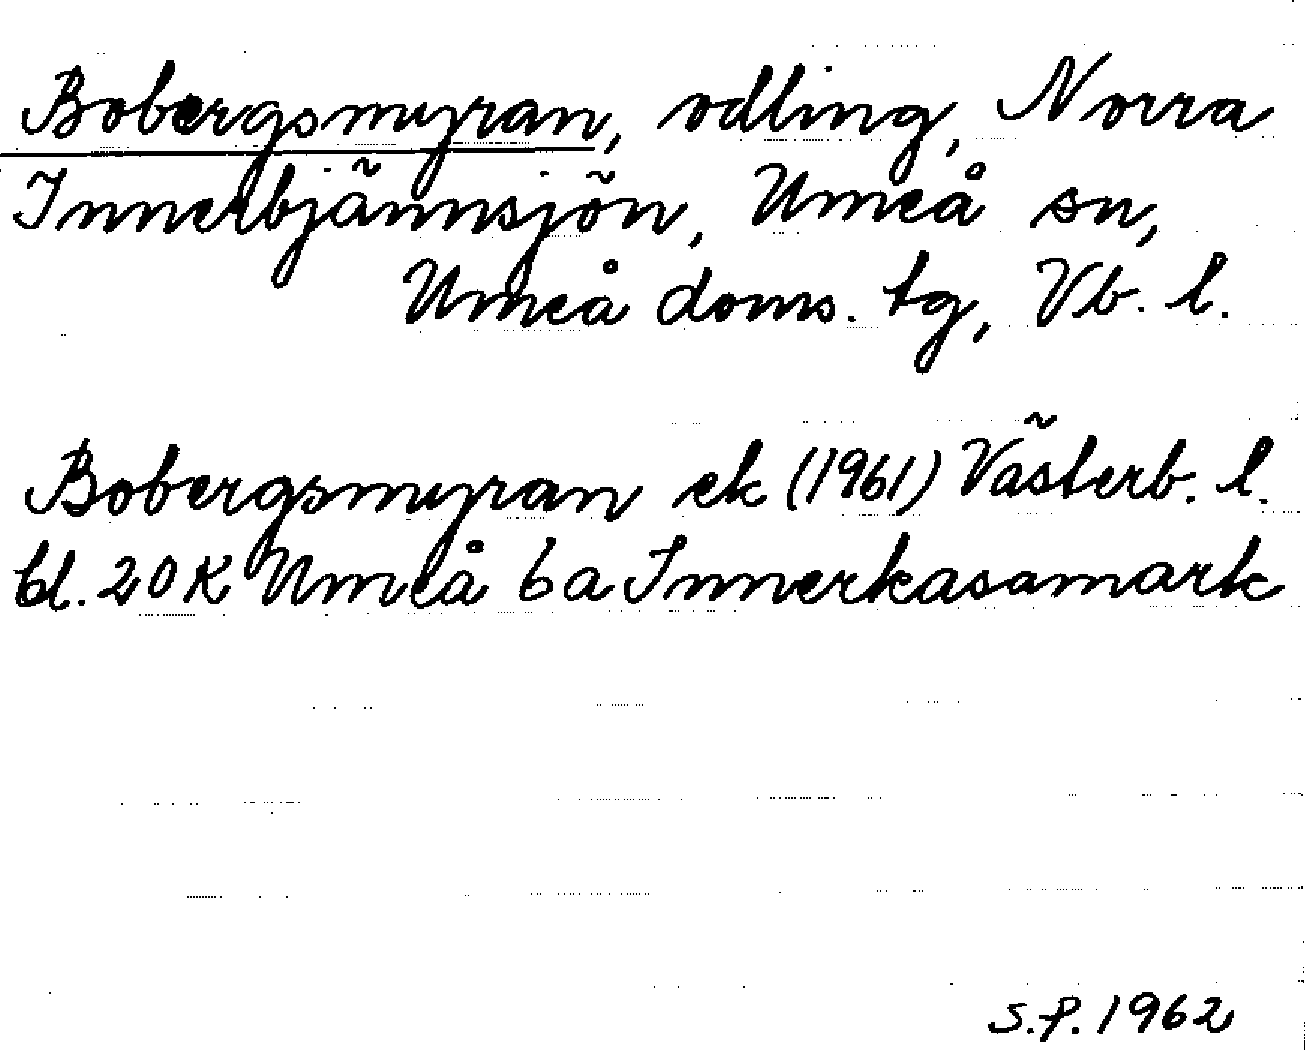 Bobergsmyran, odling, Norra
Innerbjännsjön, Umeå sn,
Umeå doms. tg, Vb. l.
Bobergsmyran ek (1961) Västerb. l.
bl. 20 K Umeå 6 a Innerkasamark
S.P. 1962